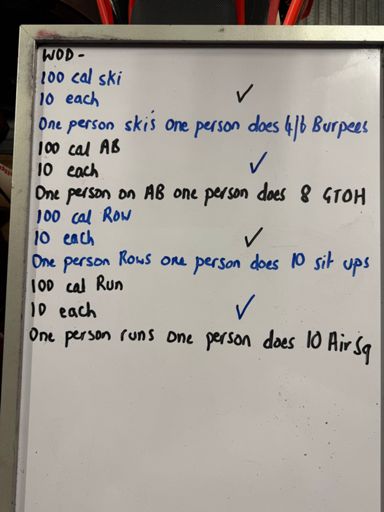 WOD -
100 cal ski
10 each ✓
One person skis one person does 4/6 Burpees
100 cal AB
10 each ✓
One person on AB one person does 8 GTOH
100 cal Row
10 each ✓
One person Rows one person does 10 sit ups
100 cal Run
10 each ✓
One person runs one person does 10 Air Sq